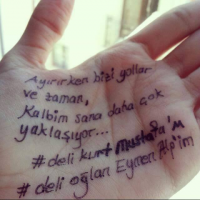 Ayırırken bizi yollar
ve zaman,
Kalbim sana daha çok
yaklaşıyor...
#deli kurt Mustafa'M
#deli oğlan Eymen Alp'im